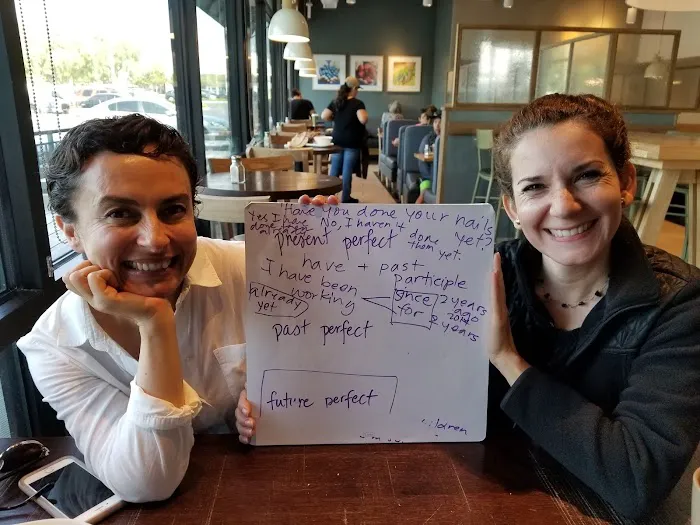 Have you done your nails yet?
Yes I have done already
No, I haven't done them yet.
present perfect
have + past participle
I have been working
already
yet
since
for
2 years ago
2014
8 years
past perfect
future perfect